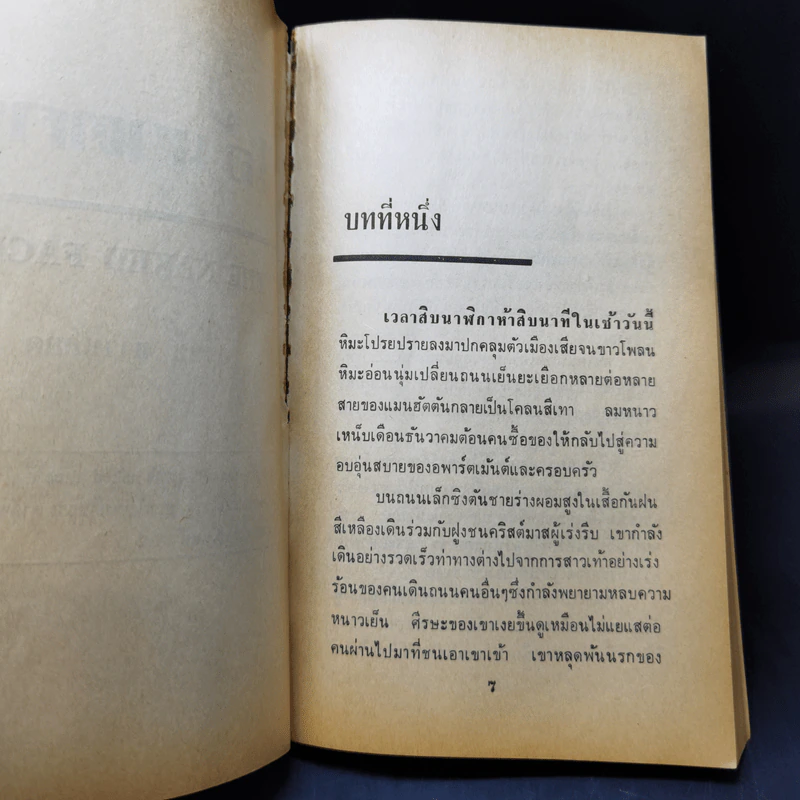 บทที่หนึ่ง
เวลาสิบนาฬิกาห้าสิบนาทีในเช้าวันนี้
หิมะโปรยปรายลงมาปกคลุมตัวเมืองเสียจนขาวโพลน
หิมะอ่อนนุ่มเปลี่ยนถนนเย็นยะเยือกหลายต่อหลาย
สายของแมนฮัตตันกลายเป็นโคลนสีเทา ลมหนาว
เหน็บเดือนธันวาคมต้อนคนซื้อของให้กลับไปสู่ความ
อบอุ่นสบายของอพาร์ตเม้นต์และครอบครัว
บนถนนเล็กซิงตันชายร่างผอมสูงในเสื้อกันฝน
สีเหลืองเดินร่วมกับฝูงชนคริสต์มาสผู้เร่งรีบ เขากำลัง
เดินอย่างรวดเร็วท่าทางต่างไปจากการสาวเท้าอย่างเร่ง
ร้อนของคนเดินถนนคนอื่นๆซึ่งกำลังพยายามหลบความ
หนาวเย็น ศีรษะของเขาเงยขึ้นดูเหมือนไม่แยแสต่อ
คนผ่านไปมาที่ชนเอาเขาเข้า เขาหลุดพ้นนรกของ
๗